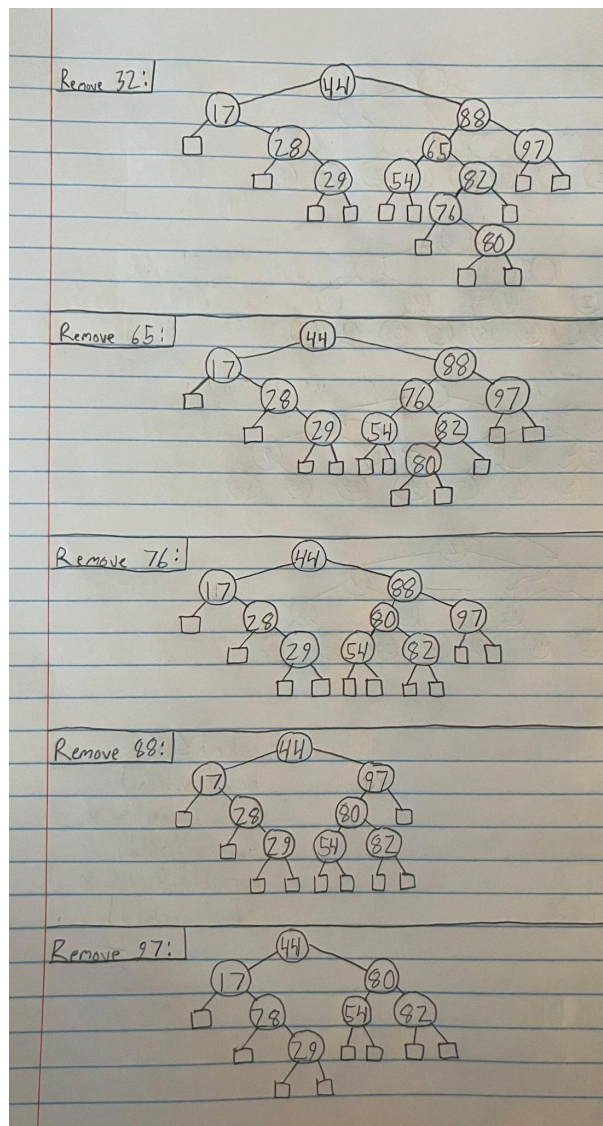 Remove 32:
44
17 88
28 65 97
29 54 82
76
80
Remove 65:
44
17 88
28 76 97
29 54 82
80
Remove 76:
44
17 88
28 80 97
29 54 82
Remove 88:
44
17 97
28 80
29 54 82
Remove 97:
44
17 80
28 54 82
29